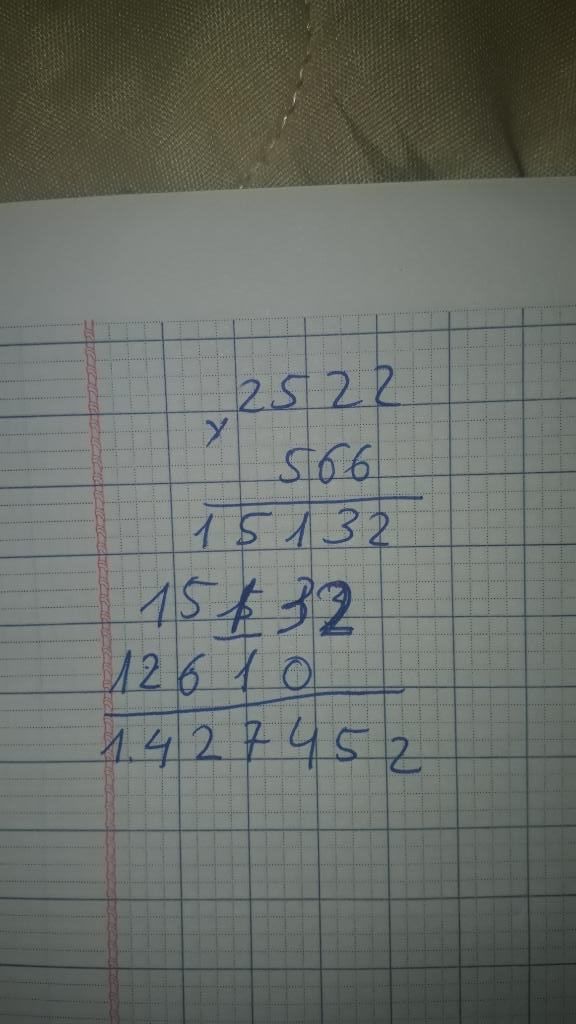 2522
x
566
15132
15132
12610
1.427452